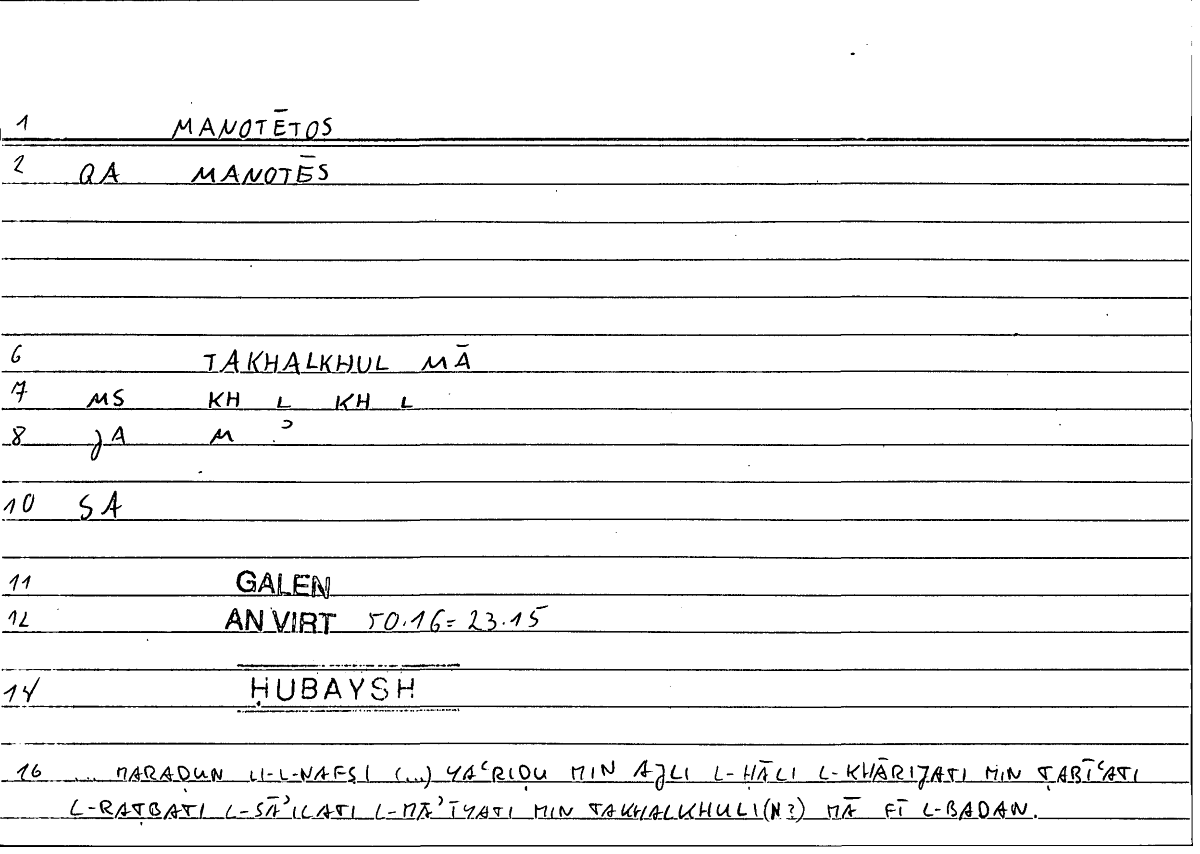 1 MANOTĒTOS
2 QA MANOTĒS
6 TAKHALKHUL MĀ
7 MS KH L KH L
8 JA M ʾ
10 SA
11 GALEN
12 AN VIRT 50.16 = 23.15
14 ḤUBAYSH
16 ... MARAḌUN LI-L-NAFSI (...) YAʿRIḌU MIN AJLI L-ḤĀLI L-KHĀRIJATI MIN ṬABĪʿATI
L-RAṬBATI L-SĀʾILATI L-MĀʾĪYATI MIN TAKHALKHULI(N?) MĀ FĪ L-BADAN.